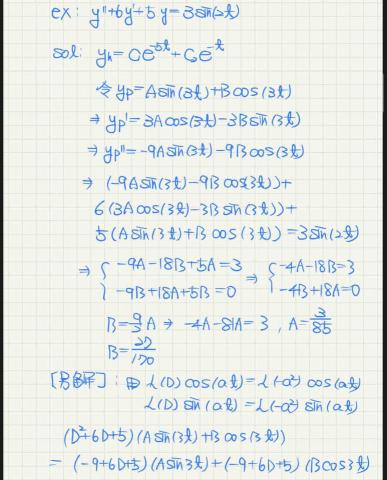 ex: y''+6y'+5y=3sin(2t)
sol: yh=Ce^-5t+Ce^-t
令yp=Asin(3t)+Bcos(3t)
⇒ yp'=3Acos(3t)-3Bsin(3t)
⇒ yp''=-9Asin(3t)-9Bcos(3t)
⇒ (-9Asin(3t)-9Bcos(3t))+
6(3Acos(3t)-3Bsin(3t))+
5(Asin(3t)+Bcos(3t))=3sin(2t)
⇒ { -9A-18B+5A=3 ⇒ { -4A-18B=3
-9B+18A+5B=0 -4B+18A=0
B=9/2 A → -4A-81A=3, A=3/85
B=27/170
[另解]: 由 L(D)cos(at)=L(-a²)cos(at)
L(D)sin(at)=L(-a²)sin(at)
(D²+6D+5)(Asin(3t)+Bcos(3t))
=(-9+6D+5)(Asin3t)+(-9+6D+5)(Bcos3t)